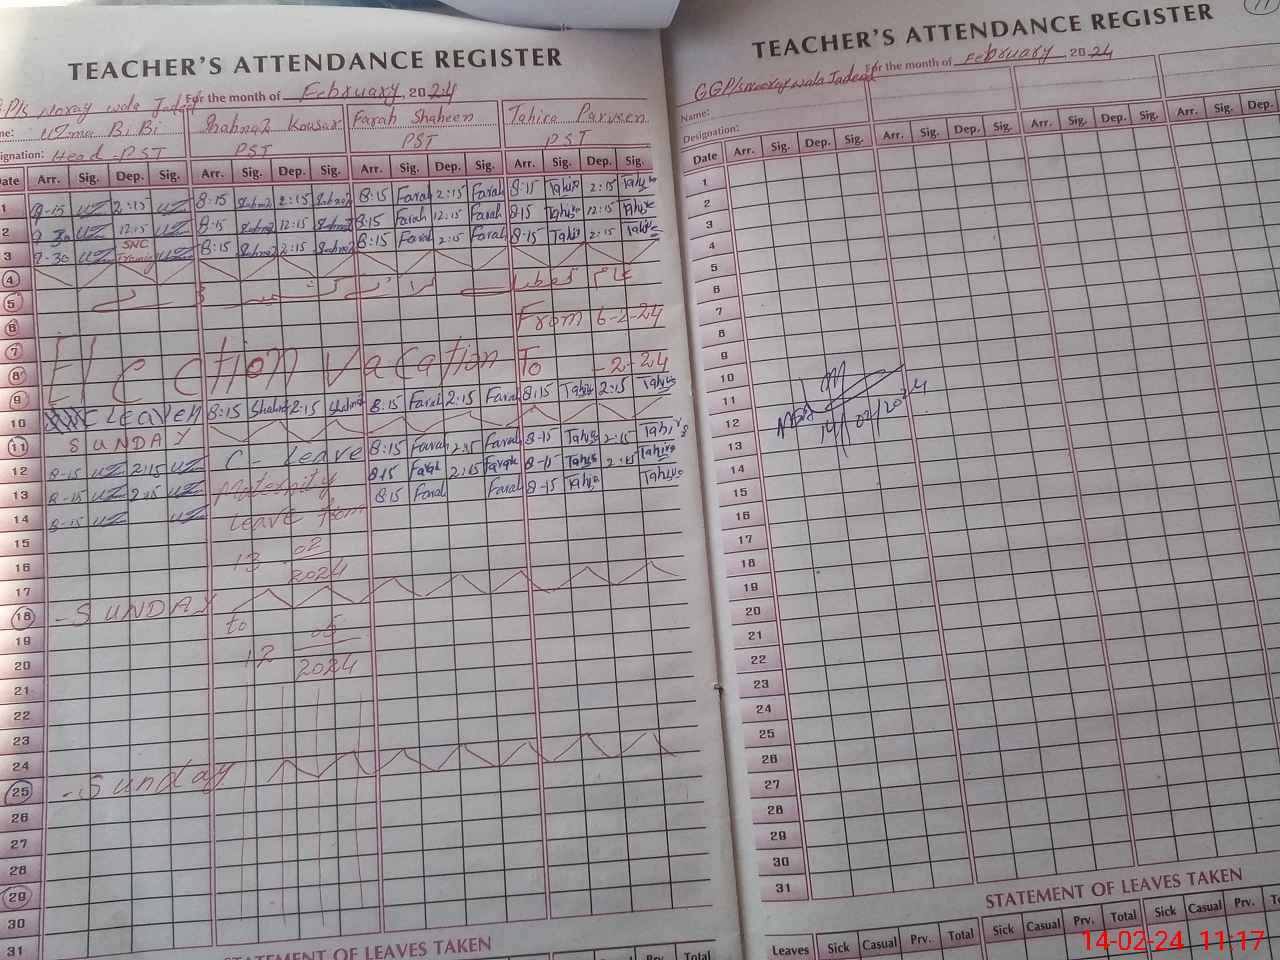 TEACHER'S ATTENDANCE REGISTER
For the month of February, 2024
Uzma BiBi Shahnaz Kousar Farah Shaheen Tahira Parveen
Designation: Head-PST PST PST PST
Date Arr. Sig. Dep. Sig. Arr. Sig. Dep. Sig. Arr. Sig. Dep. Sig. Arr. Sig. Dep. Sig.
1 8-15 UZ 2:15 UZ 8:15 Shahnaz 2:15 Shahnaz 8:15 Farah 2:15 Farah 8:15 Tahira 2:15 Tahira
2 8-30 UZ 12:15 UZ 8:15 Shahnaz 12:15 Shahnaz 8:15 Farah 12:15 Farah 8:15 Tahira 12:15 Tahira
3 9-30 UZ SNC Training UZ 8:15 Shahnaz 2:15 Shahnaz 8:15 Farah 2:15 Farah 8:15 Tahira 2:15 Tahira
4
5
6 From 6-2-24
7
8 Election Vacation To -2-24
9
10 C Leave 8:15 Shahnaz 2:15 Shahnaz 8:15 Farah 2:15 Farah 8:15 Tahira 2:15 Tahira
11 SUNDAY
12 8-15 UZ 2:15 UZ C-Leave 8:15 Farah 2:15 Farah 8-15 Tahira 2:15 Tahira
13 8-15 UZ 2:15 UZ Maternity 8:15 Farah 2:15 Farah 8-15 Tahira 2:15 Tahira
14 8-15 UZ UZ Leave from 8:15 Farah Farah 8-15 Tahira Tahira
15
16 13 02 2024
17
18 -SUNDAY to
19
20 12 05 2024
21
22
23
24
25 -Sunday
26
27
28
29
30
31
STATEMENT OF LEAVES TAKEN
Prv. Total
TEACHER'S ATTENDANCE REGISTER
11
For the month of February, 2024
Name:
Designation:
Date Arr. Sig. Dep. Sig. Arr. Sig. Dep. Sig. Arr. Sig. Dep. Sig. Arr. Sig. Dep.
1
2
3
4
5
6
7
8
9
10
11
12
13
14/02/2024
14
15
16
17
18
19
20
21
22
23
24
25
26
27
28
29
30
31
STATEMENT OF LEAVES TAKEN
Leaves Sick Casual Prv. Total Sick Casual Prv. Total Sick Casual Prv.
14-02-24 11:17